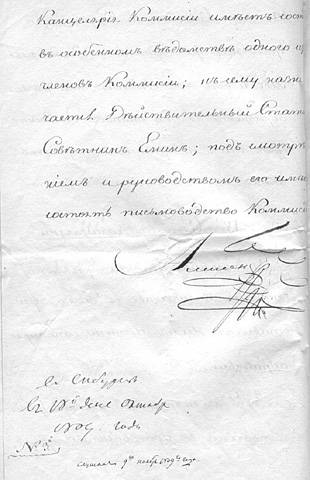 Канцелярія Коммисіи имѣетъ сост
въ особенномъ вѣдомствѣ одного и
членовъ Коммисіи; къ сему назн
чается Дѣйствительный Статс
Совѣтникъ Еминъ; подъ смотрѣ
ніемъ и руководствомъ его имѣе
состоять письмоводство Коммисі
А
С.
въ 19й день Октября
1809 года
№ 3
слушано 9го ноября 1809 года